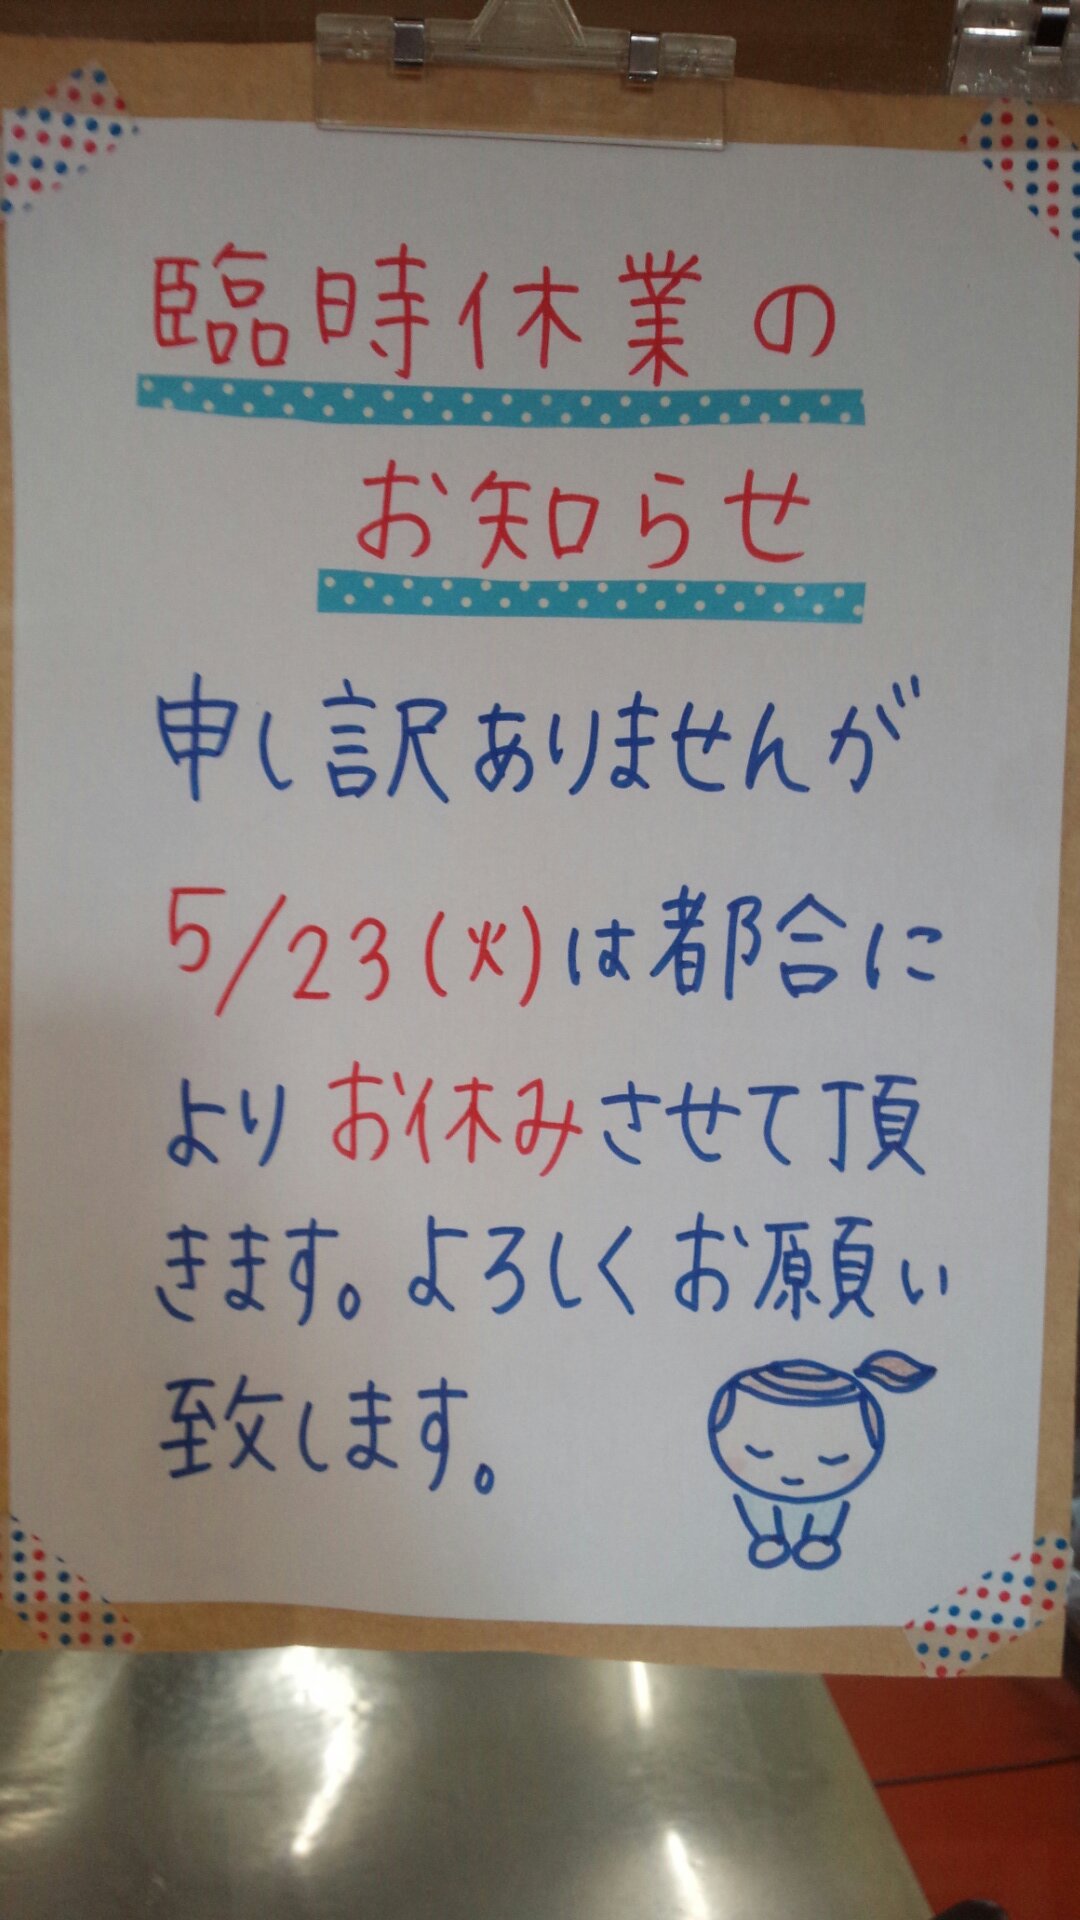 臨時休業の
お知らせ
申し訳ありませんが
5/23(火)は都合に
よりお休みさせて頂
きます。よろしくお願い
致します。